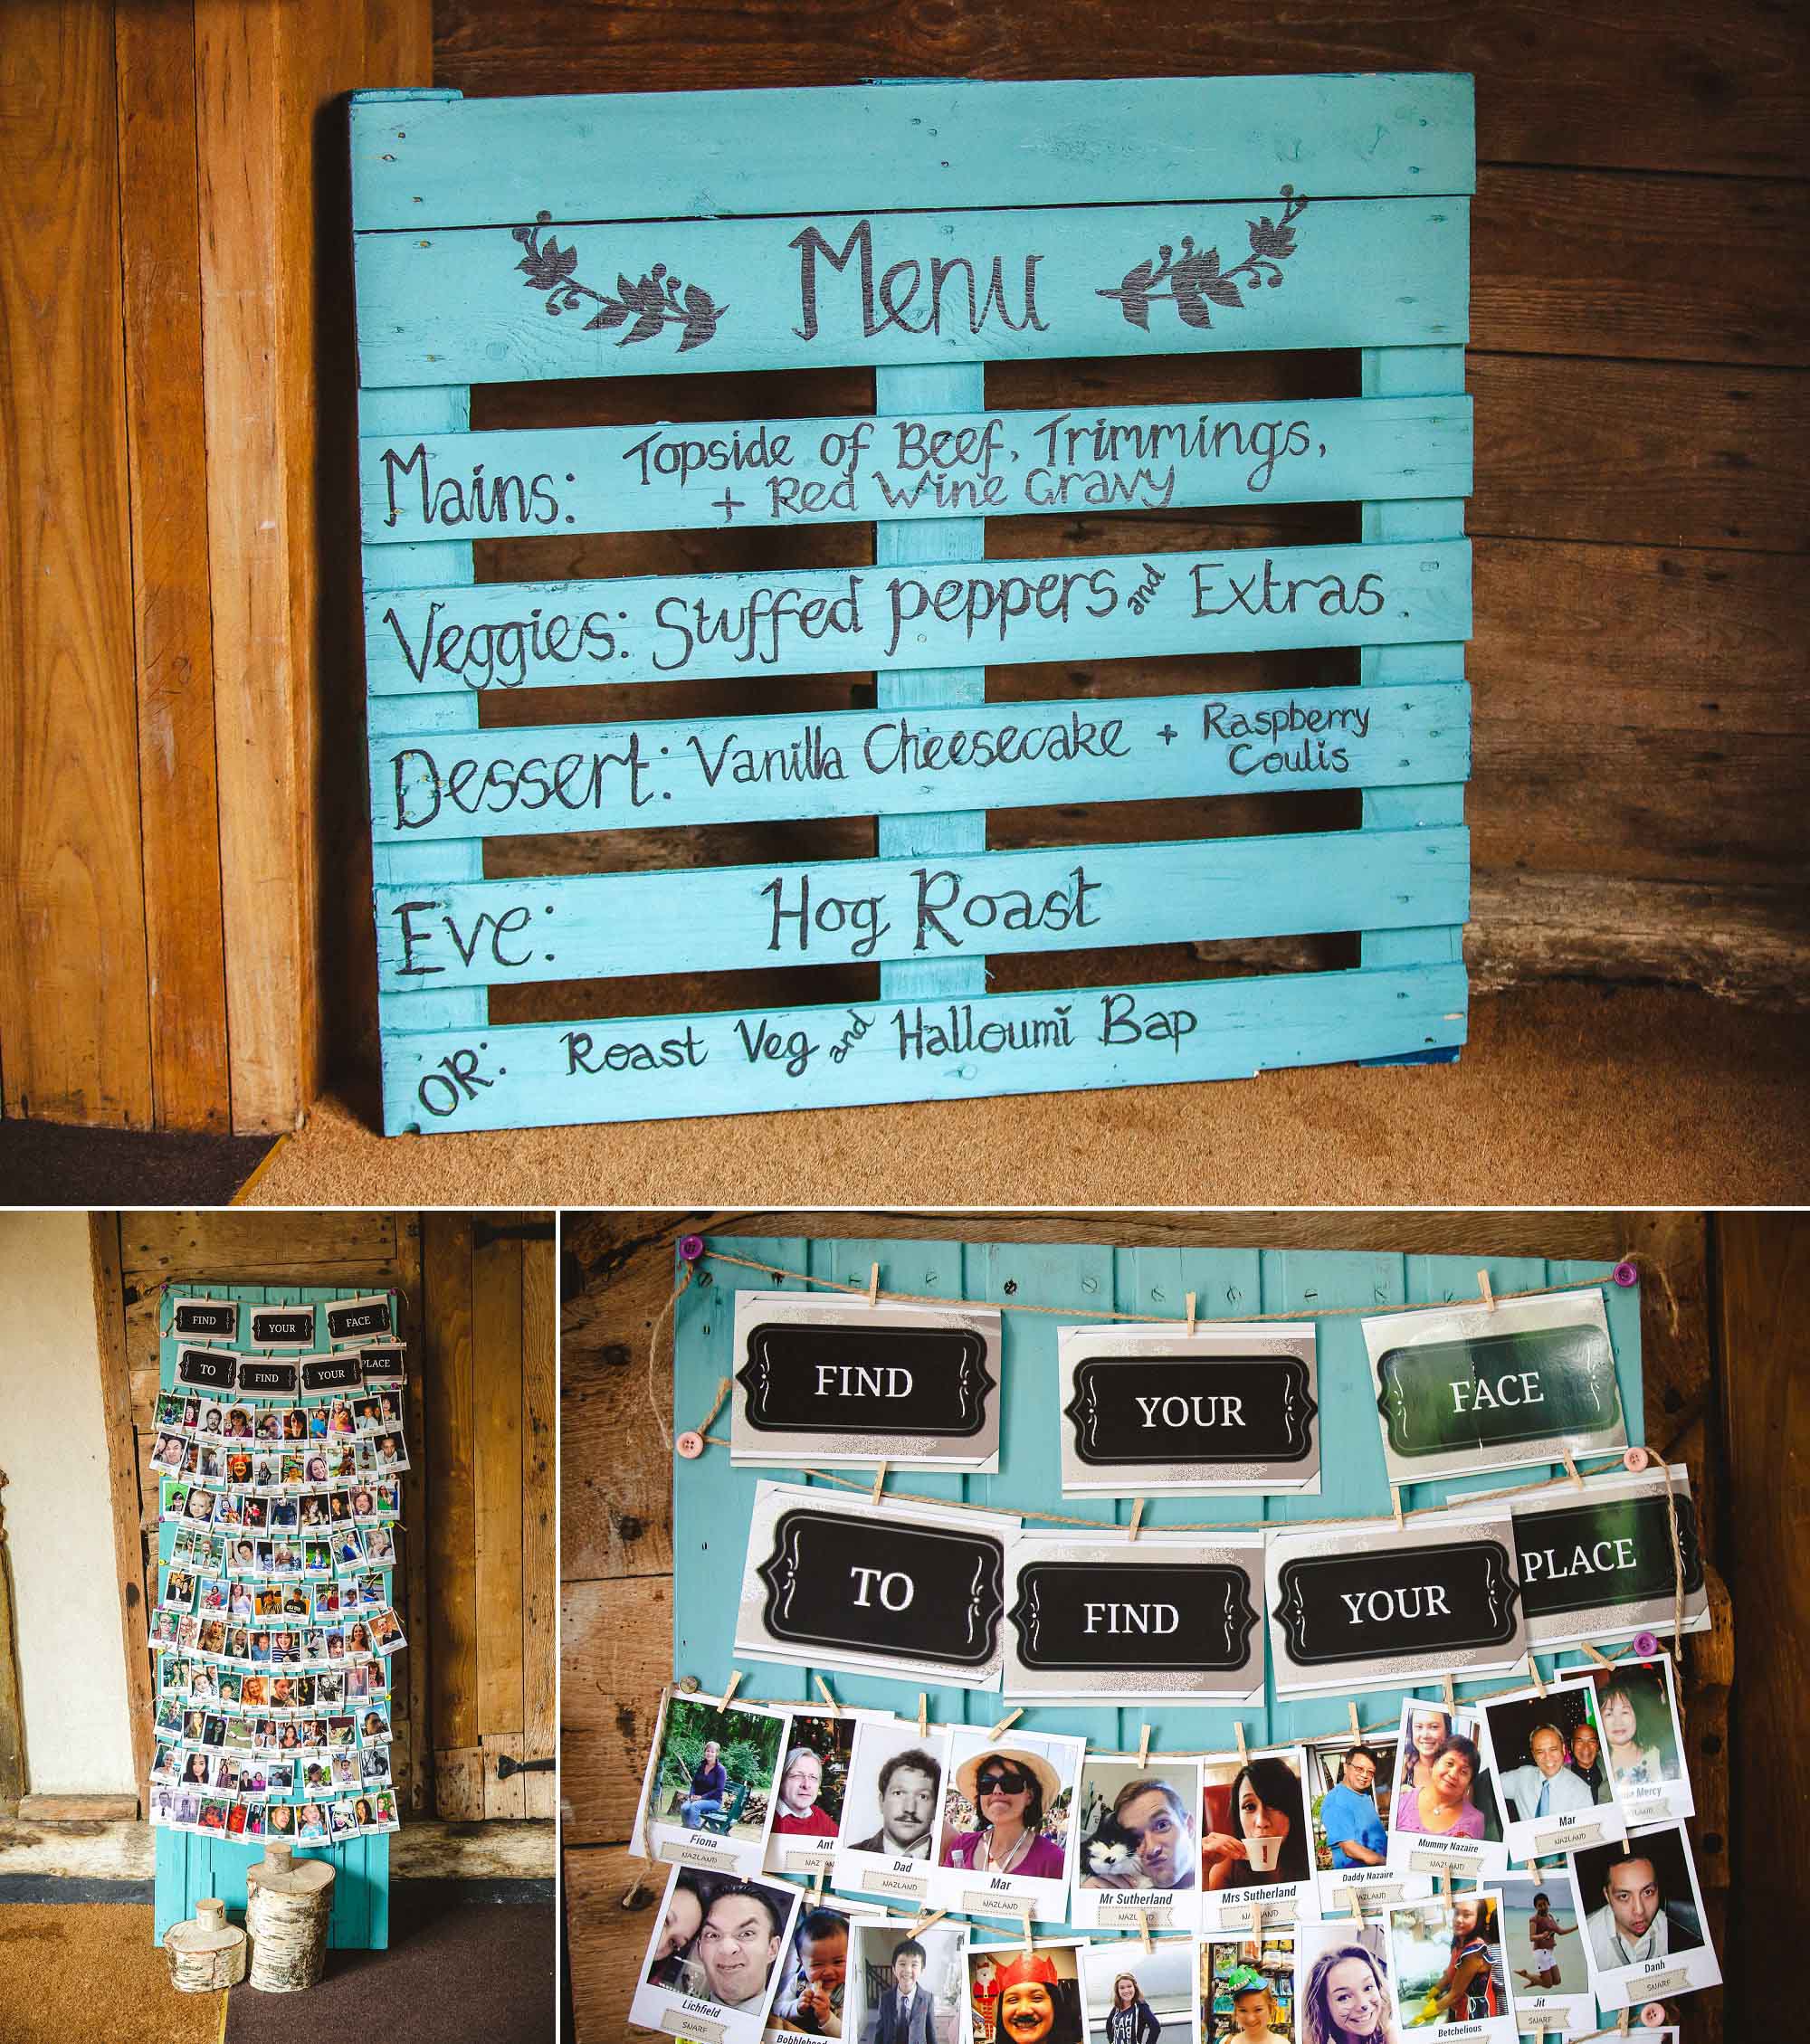 Menu
Mains: Topside of Beef, Trimmings,
+ Red Wine Gravy
Veggies: Stuffed peppers and Extras.
Dessert: Vanilla Cheesecake + Raspberry
Coulis
Eve: Hog Roast
OR: Roast Veg and Halloumi Bap
FIND YOUR FACE
TO FIND YOUR PLACE
FIND YOUR FACE
TO FIND YOUR PLACE
Fiona
NAZLAND
Ant
Dad
NAZLAND
Mar
NAZLAND
Mr Sutherland
Mrs Sutherland
Daddy Nazaire
Mummy Nazaire
Mar
NAZLAND
Mercy
Lichfield
SNARF
Jit
Betchelious
Danh
SNARF